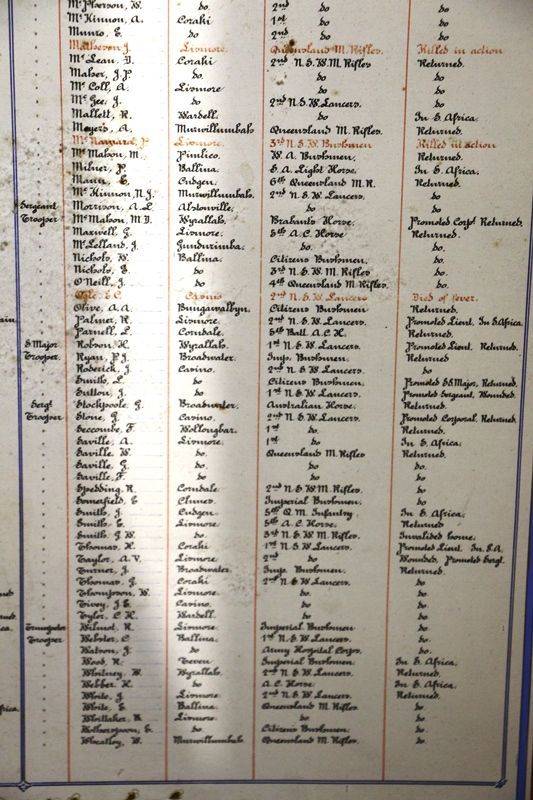 McPherson, W. do. 2nd do do.
McKinnon, A. Coraki 1st do do
Munro, E. do 2nd do do
Matheson J. Lismore. Queensland M. Rifles. Killed in action
McLean, D. Coraki 2nd N.S.W.M. Rifles Returned.
Maher, J.P. do. do do.
McColl, A. Lismore do do
McGee, J. do 2nd N.S.W. Lancers. do.
Mallett, R. Wardell. do In S. Africa.
Meyers, A. Murwillumbah Queensland M. Rifles. Returned.
McNamara, P Lismore. 3rd N.S.W. Bushmen Killed in action
McMahon, M. Pimlico. W.A. Bushmen. Returned.
Milner, P. Ballina. S.A. Light Horse. In S. Africa.
Mann, E. Cudgen. 6th Queensland M.R. Returned.
McKinnon, N.J. Murwillumbah. 2nd N.S.W. Lancers. do
Sergeant Morrison, A.L. Alstonville. do do
Trooper McMahon, M.D. Wyrallah. Brabants Horse. Promoted Corpl Returned.
Maxwell, G. Lismore. 5th A.C. Horse Returned.
McLelland, J. Gundurimba. do. do.
Nichols, W. Ballina. Citizens Bushmen. do
Nichols, E. do 3rd N.S.W.M. Rifles do
O'Neill, J. do 4th Queensland M. Rifles do.
Ogle, E.C. Casino 2nd N.S.W. Lancers Died of fever.
Olive, A.A. Bungawalbyn. Citizens Bushmen Returned.
Palmer, R. Lismore 2nd N.S.W. Lancers. Promoted Lieut. In S. Africa.
Parnell, L. Corndale. 5th Batt. A.C.H. Returned.
S Major Robson, H. Wyrallah. 1st N.S.W. Lancers. Promoted Lieut. Returned.
Trooper. Ryan, P.J. Broadwater. Imp. Bushmen. Returned
Roderick, J. Casino. 2nd N.S.W. Lancers. do
Smith, L. do Citizens Bushmen. Promoted S.S. Major, Returned.
Sutton, J. do 1st N.S.W. Lancers. Promoted Sergeant, Wounded.
Sergt Stockpoole, G. Broadwater. Australian Horse. Returned.
Trooper Stone, G. Casino. 2nd N.S.W. Lancers. Promoted Corporal, Returned.
Seccombe, F. Wollongbar. 1st do. Returned.
Saville, A. Lismore. 1st do In S. Africa.
Saville, W. do. Queensland M. Rifles Returned.
Saville, G. do. do do.
Saville, F. do do do.
Spedding, R. Corndale 2nd N.S.W.M. Rifles. do.
Somerfield, E Clunes. Imperial Bushmen. do.
Smith, J. Cudgen. 5th Q.M. Infantry. In S. Africa.
Smith, E. Lismore 5th A.C. Horse. Returned
Smith, G.W. do 3rd N.S.W.M. Rifles. Invalided home.
Thomas, H. Coraki 1st N.S.W. Lancers. Promoted Lieut. In S.A.
Taylor, A.V. Lismore. 2nd do Wounded, Promoted Sergt.
Turner, J. Broadwater. Imp. Bushmen. Returned.
Thomas, G. Coraki 2nd N.S.W. Lancers do.
Thompson, W. Lismore. do do
Tivey, J.E. Casino. do do.
Tyler, C.H. Wardell do do.
Trumpeter Wilmot, R. Lismore. Imperial Bushmen do.
Trooper Webster, C. Ballina. 1st N.S.W. Lancers. do.
Watson, J. do Army Hospital Corps. do.
Wood, R. Teven Imperial Bushmen. In S. Africa.
Whitney, W. Wyrallah. 2nd N.S.W. Lancers. Returned.
Webber, H. do A.C. Horse In S. Africa.
White, J. Lismore 2nd N.S.W. Lancers. Returned.
White, E. Ballina. Queensland M. Rifles. do
Whittaker, R Lismore. do do.
Wotherspoon, E. do Citizens Bushmen. do
Wheatley, W. Murwillumbah Queensland M. Rifles. do.